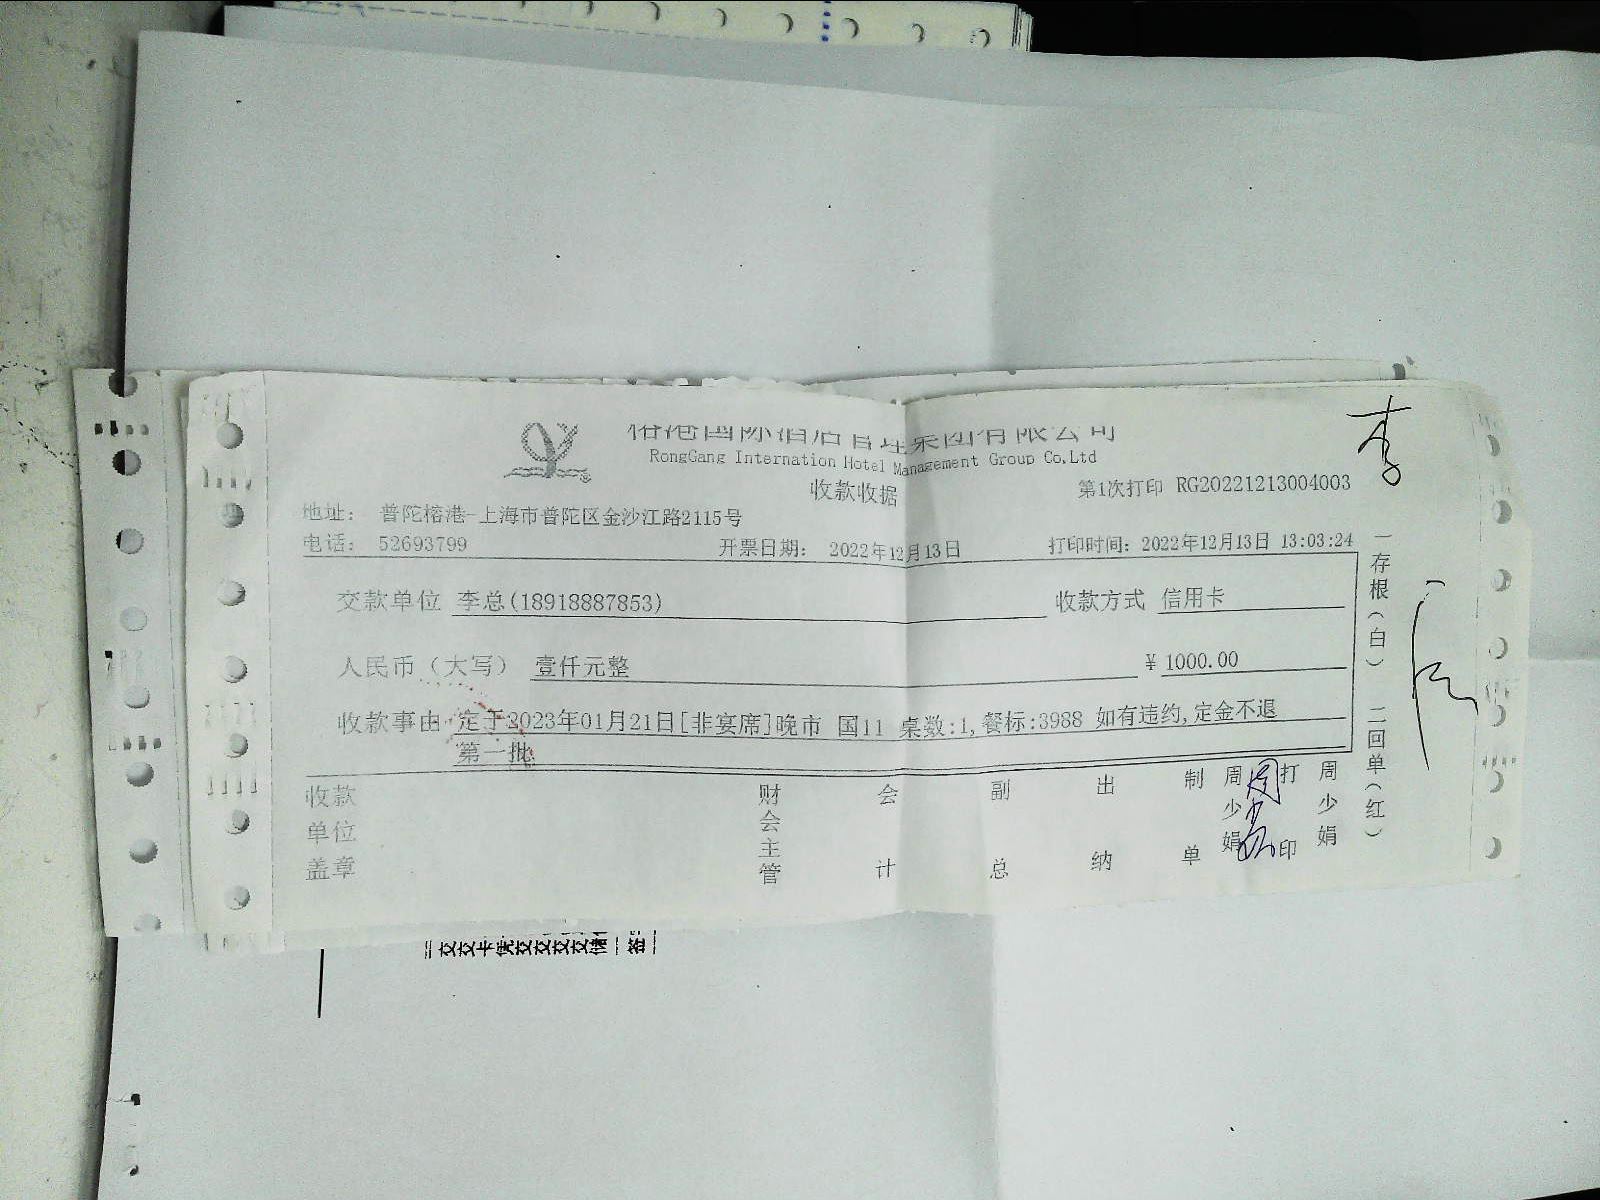 榕港国际酒店管理集团有限公司
RongGang Internation Hotel Management Group Co.Ltd
收款收据
第1次打印 RG20221213004003
地址： 普陀榕港-上海市普陀区金沙江路2115号
电话： 52693799 开票日期： 2022年12月13日 打印时间：2022年12月13日 13:03:24
交款单位 李总(18918887853) 收款方式 信用卡
人民币（大写） 壹仟元整 ¥ 1000.00
收款事由 定于2023年01月21日[非宴席]晚市 国11 桌数:1,餐标:3988 如有违约,定金不退
第一批
收款单位盖章 财会主管 会计 副总 出纳 制单 周少娟 打印 周少娟
一存根（白） 二回单（红）
李
周少娟